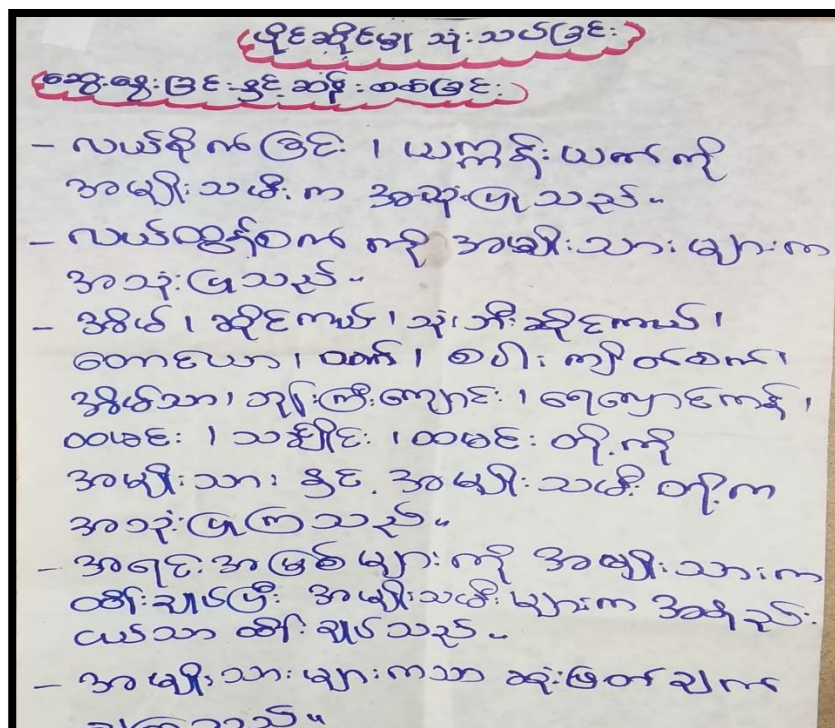 ပိုင်ဆိုင်မှု သုံးသပ်ခြင်း
ဆွေးနွေးခြင်းနှင့် ဆန်းစစ်ခြင်း
- လယ်စိုက်ခြင်း ၊ ယက္ကန်းယက်ကို
အမျိုးသမီးက အသုံးပြုသည်။
- လယ်ထွန်စက် ကို အမျိုးသားများက
အသုံးပြုသည်။
- အိမ် ၊ ဆိုင်ကယ် ၊ သုံးဘီးဆိုင်ကယ် ၊
တောင်ယာ ၊ ဝက် ၊ စပါးကြိတ်စက် ၊
အိမ်သာ ၊ ဘုန်းကြီးကျောင်း ၊ ရေလှောင်ကန် ၊
ထမင်း ၊ သချိုင်း ၊ ထမင်း တို့ကို
အမျိုးသား နှင့် အမျိုးသမီး တို့က
အသုံးပြုကြသည်။
- အရင်းအမြစ်များကို အမျိုးသားက
ထိန်းချုပ်ပြီး အမျိုးသမီးများက အနည်း
ငယ်သာ ထိန်းချုပ်သည်။
- အမျိုးသားများကသာ ဆုံးဖြတ်ချက်
ချကြသည်။